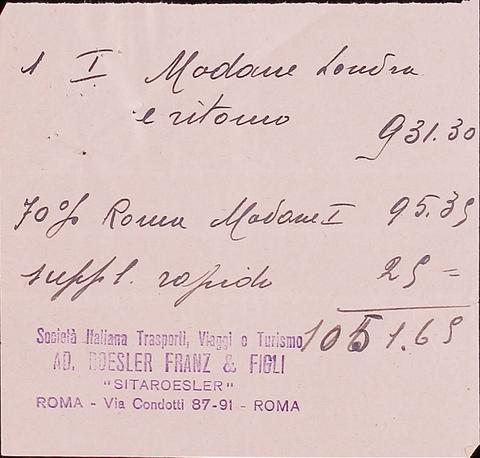 1 I Modane Londra
e ritorno
931.30
70% Roma Modane I 95.35
suppl. rapido 25 =
1051.65
Società Italiana Trasporti, Viaggi e Turismo
AD. ROESLER FRANZ & FIGLI
"SITAROESLER"
ROMA - Via Condotti 87-91 - ROMA